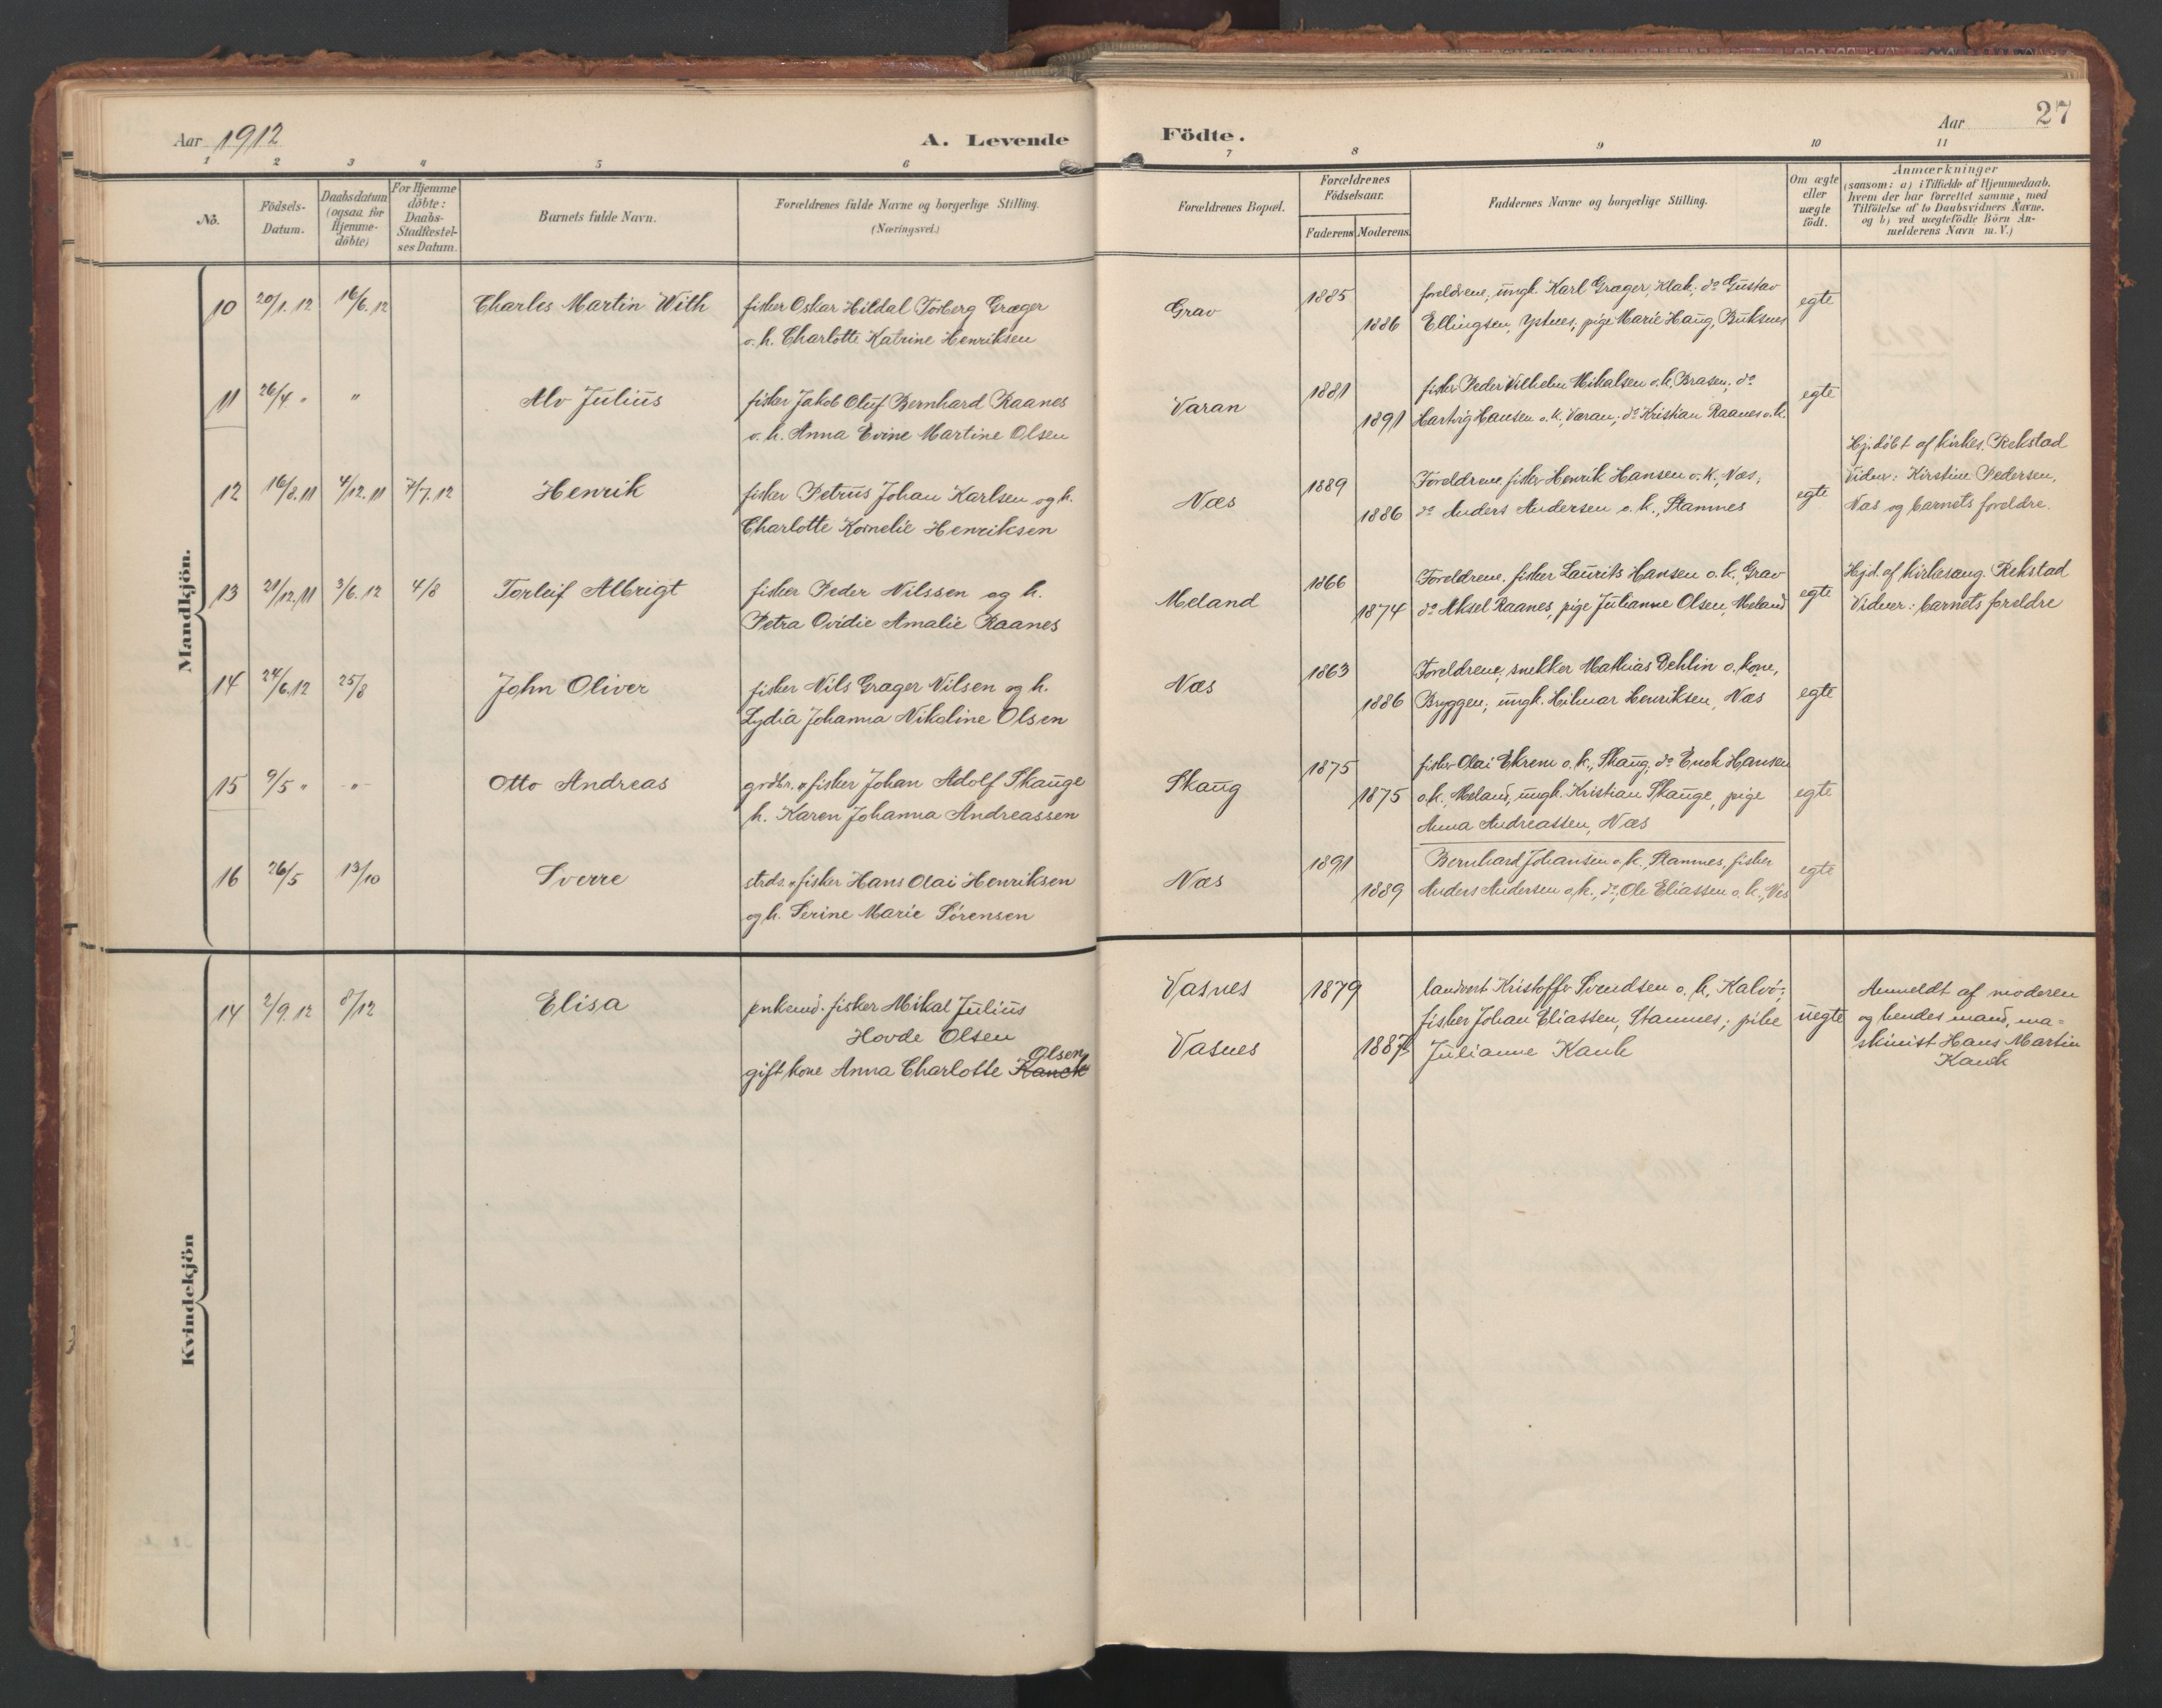 Aar 1912
A. Levende
Födte.
Aar
27
1 2 3 4 5 6 7 8 9 10 11
No.
Födsels-
Datum.
Daabsdatum
(ogsaa for
Hjemme-
döbte)
For Hjemme
döbte:
Daabs-
Stadfæstel-
ses Datum.
Barnets fulde Navn.
Forældrenes fulde Navne og borgerlige Stilling.
(Næringsvei.)
Forældrenes Bopæl.
Forældrenes
Födselsaar.
Faderens Moderens
Faddernes Navne og borgerlige Stilling.
Om ægte
eller
uægte
födt.
Anmærkninger
(saasom: a) i Tilfælde af Hjemmedaab.
hvem der har forrettet samme, med
Tilföielse af to Daabsvidners Navne.
og b) ved uægtefödte Börn An-
melderens Navn m. V.)
Mandkjön.
10 20/1.12 16/6.12 Charles Martin With
fisker Oskar Hildal Torberg Græger
o. h. Charlotte Katrine Henriksen
Grav
1885
1886
foreldrene; ungk. Karl Græger, Klak; do Gustav
Ellingsen, Ystnes; pige Marie Haug, Buksnes
egte
11 26/4 " " Alv Julius
fisker Jakob Oluf Bernhard Raanes
o. h. Anna Evine Martine Olsen
Varan
1881
1891
fisker Peder Vilhelm Mikalsen o. k. Brasen; do
Hartvig Hansen o. k., Varan; do Kristian Raanes o. k.
egte
12 16/8.11 4/12.11 7/7.12 Henrik
fisker Petrus Johan Karlsen og h.
Charlotte Kornelie Henriksen
Næs
1889
1886
Foreldrene, fisker Henrik Hansen o. k., Næs;
do Anders Andersen o. k., Stamnes
egte
Hj. döbt af kirkes. Rekstad
Vidner: Kirstine Pedersen,
Næs og barnets foreldre.
13 21/12.11 3/6.12 4/8 Torleif Albrigt
fisker Peder Nilssen og h.
Petra Ovidie Amalie Raanes
Meland
1866
1874
Foreldrene, fisker Laurits Hansen o. k., Grav
do Aksel Raanes, pige Julianne Olsen, Meland
egte
Hj.d. af kirkesang. Rekstad
Vidner: barnets foreldre
14 24/6.12 25/8 John Oliver
fisker Nils Græger Nilsen og h.
Lydia Johanna Nikoline Olsen
Næs
1863
1886
Foreldrene, snekker Mathias Dehlin o. kone,
Bryggen; ungk. Hilmar Henriksen, Næs
egte
15 9/5 " -"- Otto Andreas
grdbr. & fisker Johan Adolf Skauge
h. Karen Johanna Andreassen
Skaug
1875
1875
fisker Olai Ekrem o. k., Skaug; do Enok Hansen
o. k., Meland, ungk. Kristian Skauge, pige
Anna Andreassen, Næs
egte
16 26/5 13/10 Sverre
strds. & fisker Hans Olai Henriksen
og h. Serine Marie Sørensen
Næs
1891
1889
Bernhard Johansen o. k., Stamnes, fisker
Anders Andersen o. k., do, Ole Eliassen o. k., Nes
egte
Kvindekjön
14 2/9.12 8/12 Elisa
enkemd. fisker Mikal Julius
Hovde Olsen
Olsen
gift kone Anna Charlotte Kanck
Vasnes
Vasnes
1879
1887
Kristoffer Svendsen o. k., Kalvö;
fisker Johan Eliassen, Stamnes; pike
Julianne Kank
uegte
Anmeldt af moderen
og hendes mand, ma=
skinist Hans Martin
Kank